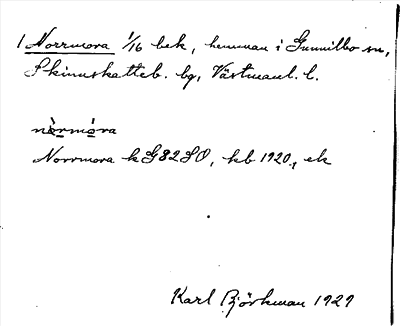 1 Norrmora 1/16 bek, hemman i Gunnilbo sn,
Skinnskatteb. bg, Västmanl. l.
nòrmóra
Norrmora k G82SO, kb 1920, ek
Karl Björkman 1929